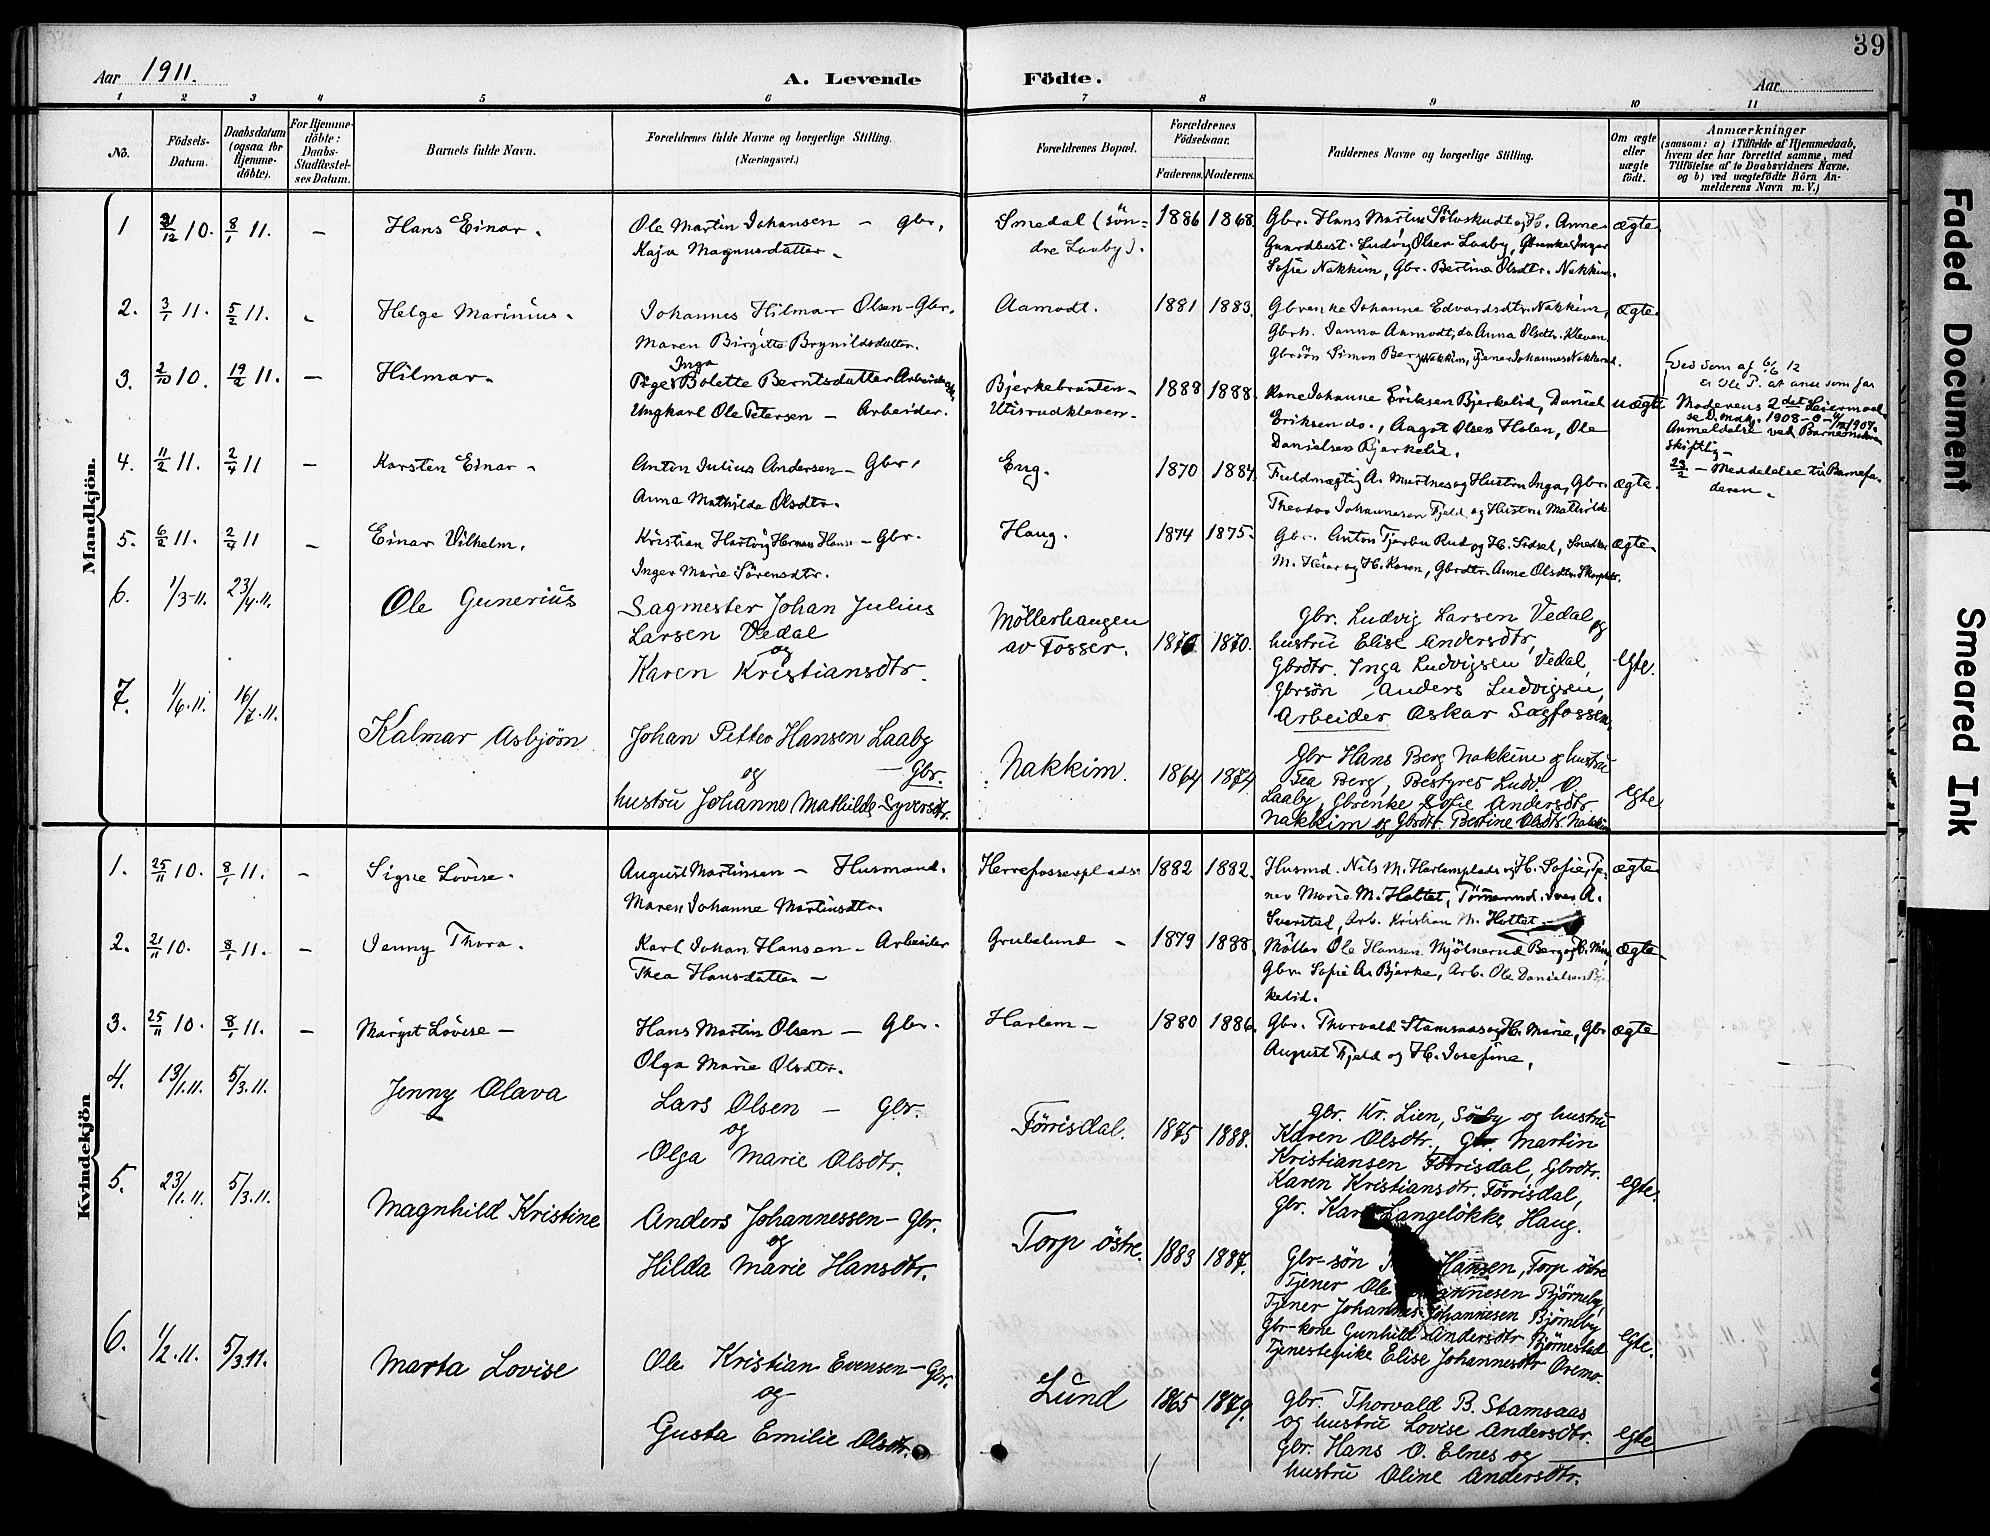 39
Aar 1911.
A. Levende Födte.
Aar
1 2 3 4 5 6 7 8 9 10 11
No.
Födsels-Datum.
Daabsdatum (ogsaa for Hjemme-döbte).
For Hjemme-döbte: Daabs-Stadfæstel-ses Datum.
Barnets fulde Navn.
Forældrenes fulde Navne og borgerlige Stilling.
(Næringsvei.)
Forældrenes Bopæl.
Forældrenes Födselsaar.
Faderens. Moderens.
Faddernes Navne og borgerlige Stilling.
Om ægte eller uægte födt.
Anmærkninger
(saasom: a) i Tilfælde af Hjemmedaab,
hvem der har forrettet samme, med
Tilföielse af to Daabsvidners Navne,
og b) ved uægtefödte Börn An-
melderens Navn m. V.)
Mandkjön.
1 31/12 10. 8/1 11. – Hans Einar. Ole Martin Johansen – Gbr. Smedal (sön- 1886 1868. Gbr. Hans Martin Sölvskudt og H. Anne ægte.
Kaja Magnusdatter. dre Laaby). Gaardbest. Ludvig Olsen Laaby, Gbrenke Inger
Sofie Nakkim, Gbr. Bertine Olsdtr. Nakkim.
2. 3/1 11. 5/2 11. Helge Marinius. Johannes Hilmar Olsen – Gbr. Aamodt. 1881 1883. Gbrenke Johanne Edvardsdtr. Nakkim, ægte.
Maren Birgitte Brynildsdatter. Gbrh. Janna Aamodt, do Anna Olsdtr. Kleven
Gbrsön Simon Berg Nakkim, Tjener Johannes Nakkerud.
3. 2/10 10. 19/2 11. – Hilmar. Pige Inga Bolette Berntsdatter Arbeiderske Bjerkebraaten – 1888 1888. Kone Johanne Eriksen Bjerkelid, Daniel uægte
Ungkarl Ole Petersen – Arbeider. Utisrudkleven – Eriksen do., Aagot Olsen Holen, Ole
Danielsen Bjerkelid.
Ved Dom af 6/6 12
er Ole P. at anse som far
Moderens 2det Leiermaal
Anmeldelse ved Barnemoderen
skiftlig –
23/2 – Meddelelse til Barnefa-
deren.
4. 11/2 11. 2/4 11 – Karsten Einar – Anton Julius Andersen – Gbr. Eng. 1870 1884. Fuldmægtig A. Murtnes og Hustru Inga, Gbr. ægte.
Anna Mathilde Olsdtr. Theodor Johannesen Fjeld og Hustru Mathilde
5. 6/2 11. 2/4 11 – Einar Vilhelm. Kristian Hartvig Herman Hansen – Gbr. Haug. 1874 1875. Gbr. Anton Tjerbu Rud og H. Sidsel, Snedker ægte.
Inger Marie Sörensdtr. M. Heiar og H. Karen, Gbrdtr. Anne Olsdtr.
6. 1/3–11. 23/4.11. Ole Gunerius Sagmester Johan Julius
Larsen Vedal
og
Karen Kristiansdtr.
Möllerhaugen
av Fosser. 1876 1870. Gbr. Ludvig Larsen Vedal og
hustru Elise Andersdtr,
Gbrdtr. Inga Ludvigsen Vedal,
Gbrsön Anders Ludvigsen,
Arbeider Oskar Sagfossen. egte.
7. 1/6.11. 16/7.11. Kalmar Asbjörn Johan Petter Hansen Laaby
og – Gbr.
hustru Johanne Mathilde Syversdtr.
Nakkim. 1864 1874. Gbr Hans Berg Nakkim og hustru
Tea Berg, Bestyrer Ludv. O.
Laaby, Gbrenke Sofie Andersdtr
Nakkim og Gbrdtr. Bertine Olsdtr. Nakkim egte
Kvindekjön
1. 25/11 10. 8/1 11. – Signe Lovise. August Martinsen – Husmand. Herrefosserplads. 1882 1882. Husmd. Nils M. Harlemplads og H. Sofie, Tje- ægte.
Maren Johanne Martinsdtr. ner Marie M. Holtet, Tömmermd. Iver A.
Svarstad, Arb. Kristian M. Holtet.
2. 21/11 10. 8/1 11. – Jenny Thora. Karl Johan Hansen – Arbeider Grubelund – 1879 1888. Möller Ole Hansen Mjölnerud Berg og H. Mina, ægte.
Thea Hansdatter – Gbr. Sofie A. Bjerke, Arb. Ole Danielsen Bjer-
kelid.
3. 25/11 10. 8/1 11. – Margit Lovise – Hans Martin Olsen – Gbr. Harlem – 1880 1886. Gbr. Thorvald Stamsaas og H. Marie, Gbr ægte
Olga Marie Olsdtr. August Fjeld og H. Josefine.
4. 13/1.11. 5/3.11. Jenny Olava Lars Olsen – Gbr.
og
Olga Marie Olsdtr.
Förrisdal. 1875 1888. Gbr. Kr. Lien, Söby og hustru
Karen Olsdtr., Gbr. Martin
Kristiansen Förrisdal, Gbrdtr.
Karen Kristiansdtr. Förrisdal,
Gbr. Karl Langelökke, Haug. egte.
5. 23/1.11. 5/3.11. Magnhild Kristine Anders Johannessen – Gbr.
og
Hilda Marie Hansdtr.
Torp östre. 1883 1887. Gbr-sön Hansen, Torp östre
Tjener Ole Johannesen Björneby,
Tjener Johannes Johannesen Björneby
Gbr-kone Gunhild Andersdtr Björnestad
Tjenestepike Elise Johannesdtr Oremo. egte.
6. 1/2.11. 5/3.11. Marta Lovise Ole Kristian Evensen – Gbr.
og
Gusta Emilie Olsdtr.
Lund 1865 1879. Gbr. Thorvald B. Stamsaas
og hustru Lovise Andersdtr.
Gbr. Hans O. Elnes og
hustru Oline Andersdtr. egte
Faded Document
Smeared Ink